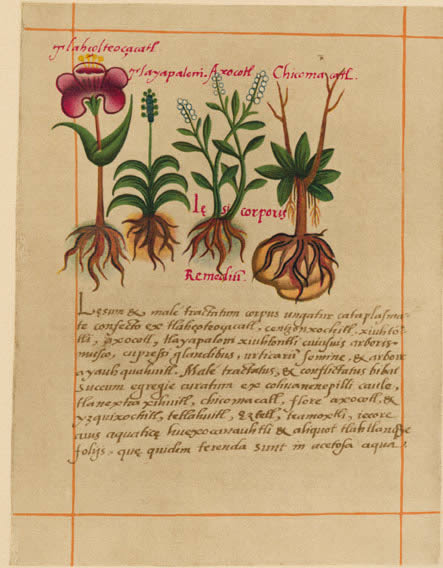 Tlahçolteoçacatl.
Tlayapaloni. Axocotl. Chicomacatl.
Lęsi corporis
Remediũ.
Lęsum & male tractatum corpus ungatur cataplasma-
te confecto ex tlahçoteoçacatl, centzonxochitl, xiuhto-
tli, axocotl, tlayapaloni xiuhtontli cuiusvis arboris
musco, cupressi glandibus, urticarū semine, & arbore
ayauhquahuitl. Male tractatus, & conflictatus bibat
succum egregie curatum ex cohuanenepilli caule,
tlanextia xihuitl, chicomacatl, flore axocotl, &
yzquixochitl, tetlahuitl, eztetl, teamoxtli, iecore
avis aquaticę huexocanauhtli & aliquot tlahtlanque
folijs, quę quidem terenda sunt in acetosa aqua.